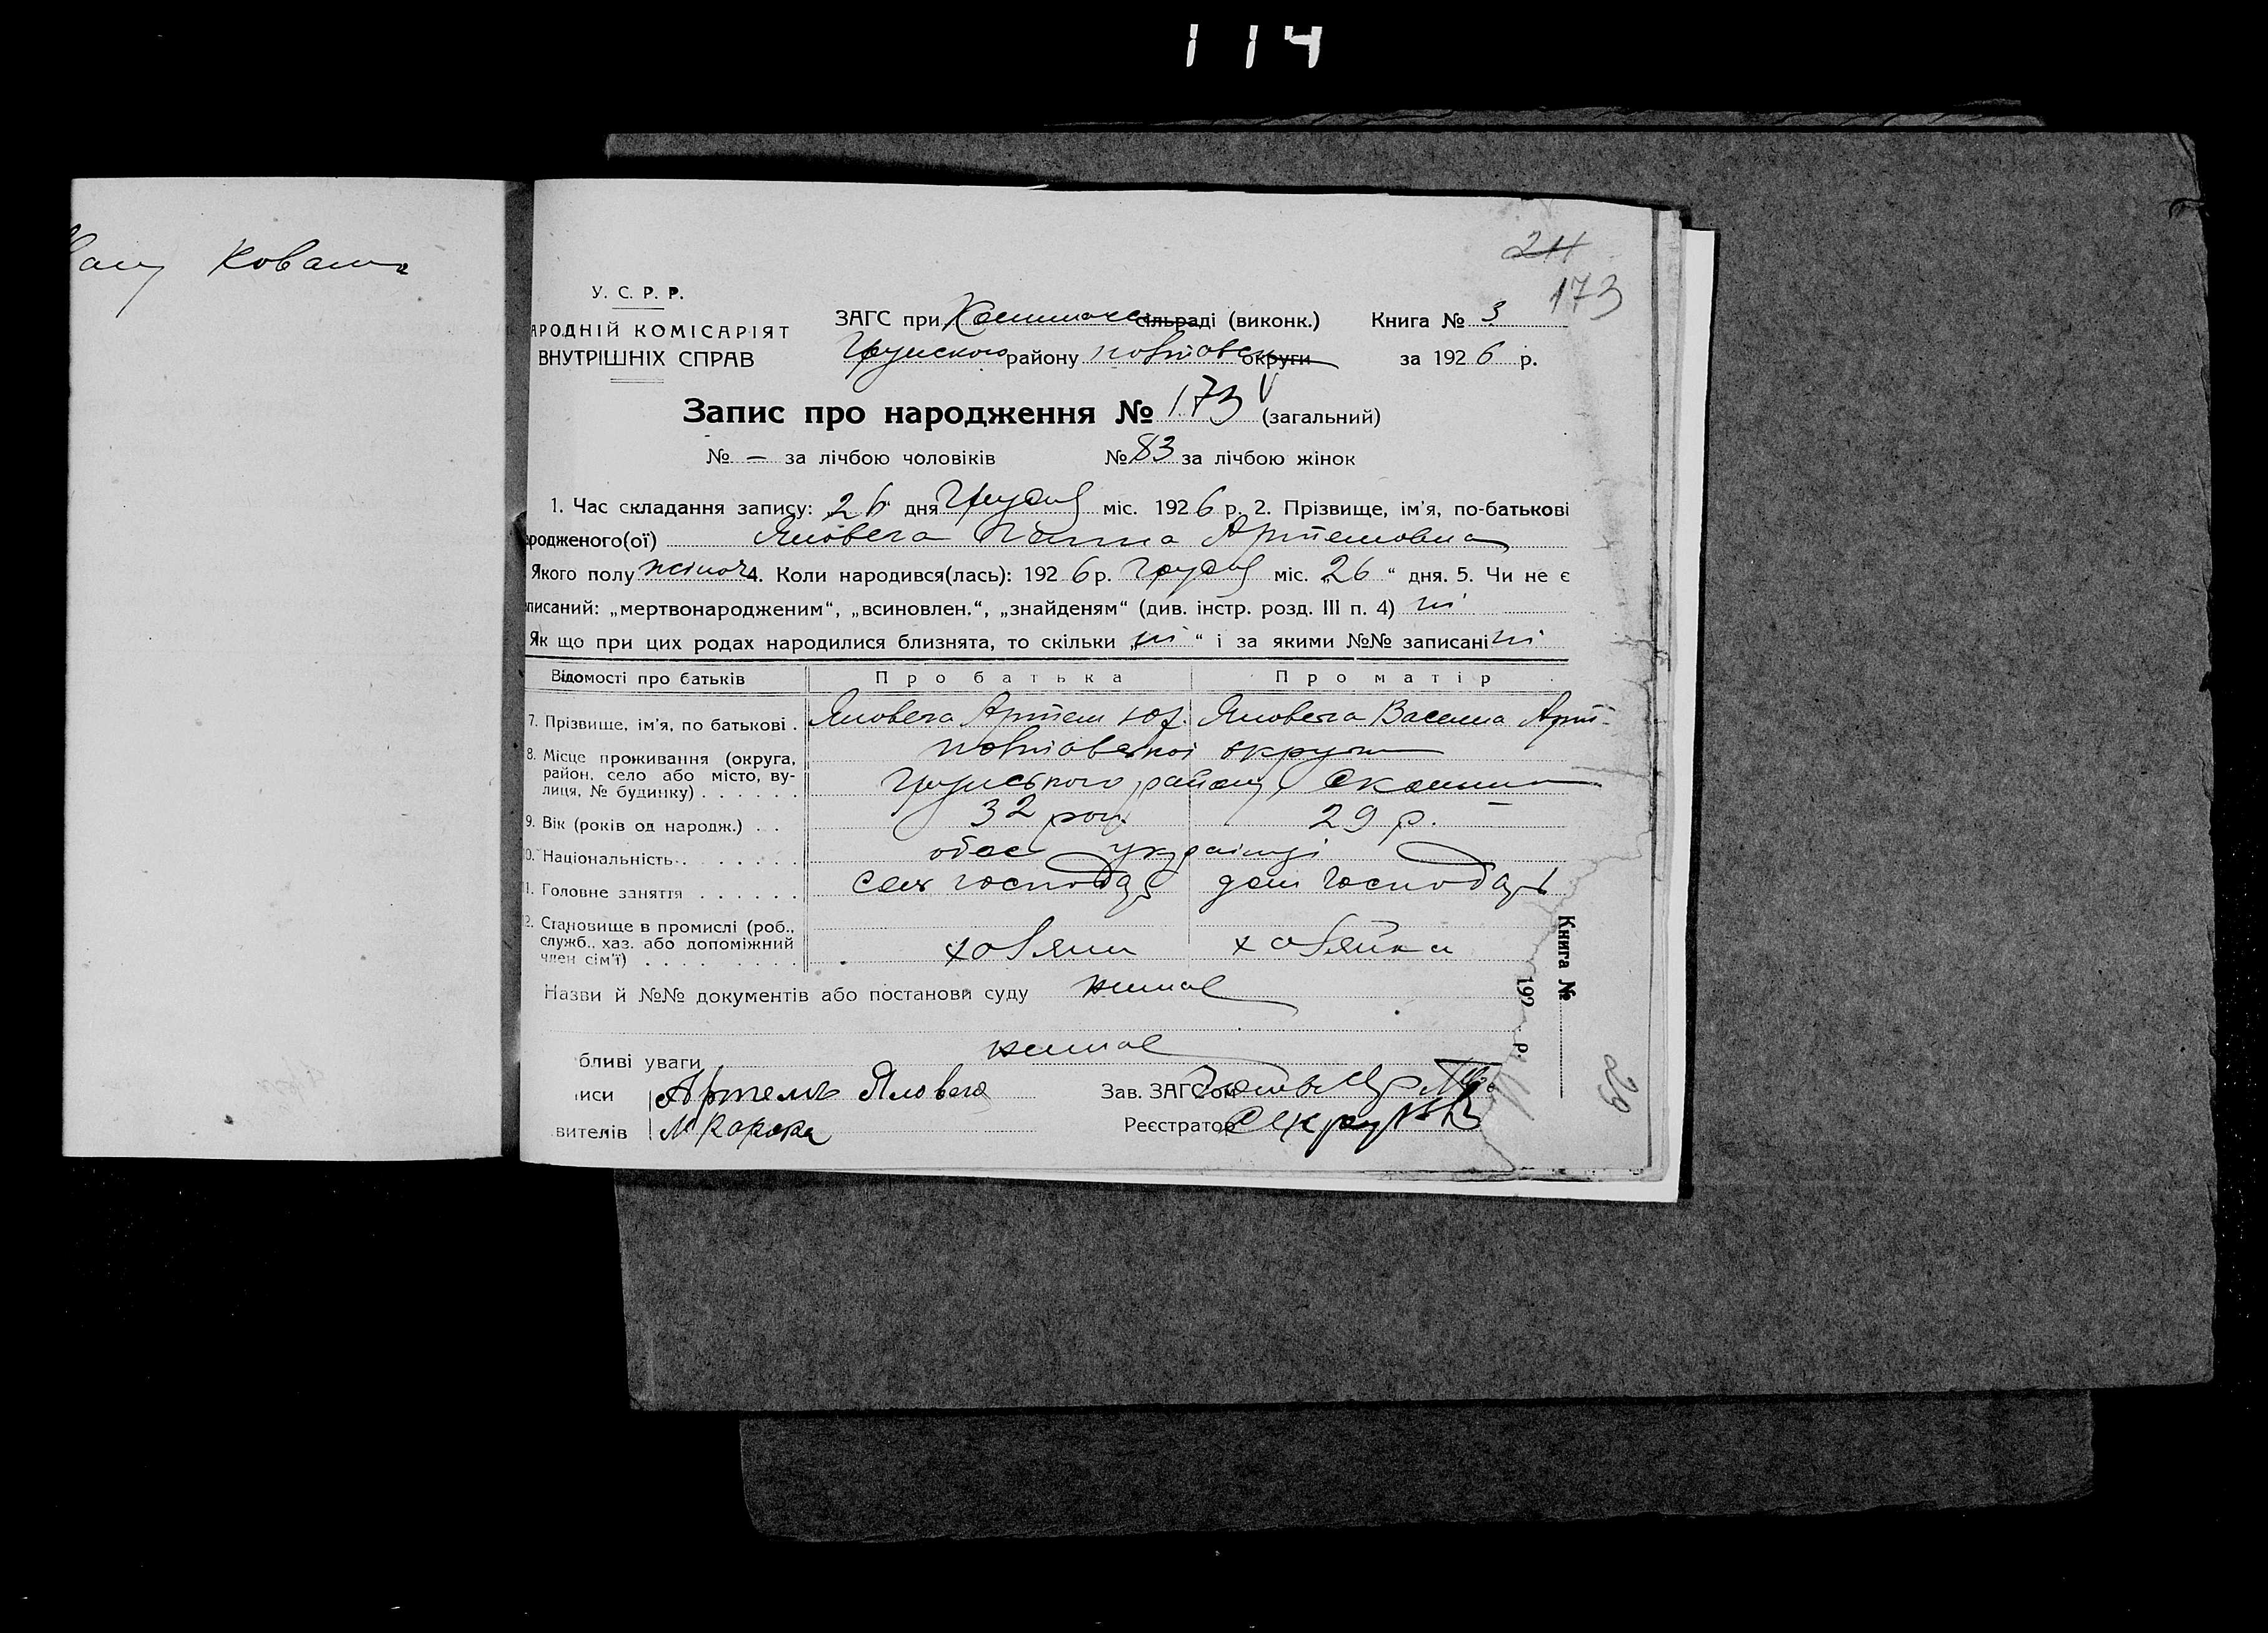 114
Ковань
24
173
У. С. Р. Р.
АРОДНІЙ КОМІСАРІЯТ
ВНУТРІШНІХ СПРАВ
ЗАГС при сільраді (виконк.) Книга № 3
Грунського району Полтавськ округи за 1926 р.
Запис про народження № 173 (загальний)
№ – за лічбою чоловіків № 83 за лічбою жінок
1. Час складання запису: „26“ дня Грудня міс. 1926 р. 2. Прізвище, ім'я, по-батькові
родженого(ої) Яловега Ганна Артемовна
Якого полу жіноч 4. Коли народився(лась): 1926 р. Грудня міс. „26“ дня. 5. Чи не є
писаний: „мертвонародженим“, „всиновлен.“, „знайденям“ (див. інстр. розд. III п. 4) ні
Як що при цих родах народилися близнята, то скільки „ні“ і за якими №№ записані ні
Відомості про батьків Про батька Про матір
7. Прізвище, ім'я, по батькові . Яловега Артем Яловега Василина Арт
8. Місце проживання (округа, Полтавської округи
район, село або місто, ву- Грунського району
лиця, № будинку) . . . . . .
9. Вік (років од народж.) . . 32 рок. 29 р. –
0. Національність . . . . . . . обоє українці
1. Головне заняття . . . . . . сель господар дом господарь
2. Становище в промислі (роб.,
служб., хаз. або допоміжний хозяин хозяйка
член сім'ї) . . . . . . . . .
Назви й №№ документів або постанови суду немає
бливі уваги немає
иси Артемъ Яловега Зав. ЗАГСом
вителів Реєстратор
Книга №
192 р.
29